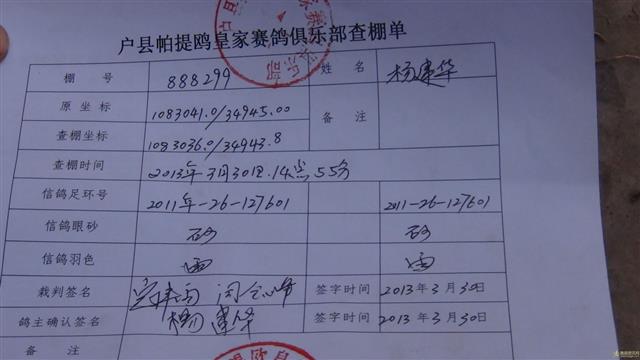 户县帕提鸥皇家赛鸽俱乐部查棚单
棚号 888299 姓名 杨建华
原坐标 1083041.0/34945.00 备注
查棚坐标 1083036.0/34943.8
查棚时间 2013年3月30日.14点55分
信鸽足环号 2011年-26-127601 2011-26-127601
信鸽眼砂 砂 砂
信鸽羽色 雨 雨
裁判签名 签字时间 2013年3月30日
鸽主确认签名 杨建华 签字时间 2013年3月30日
备注